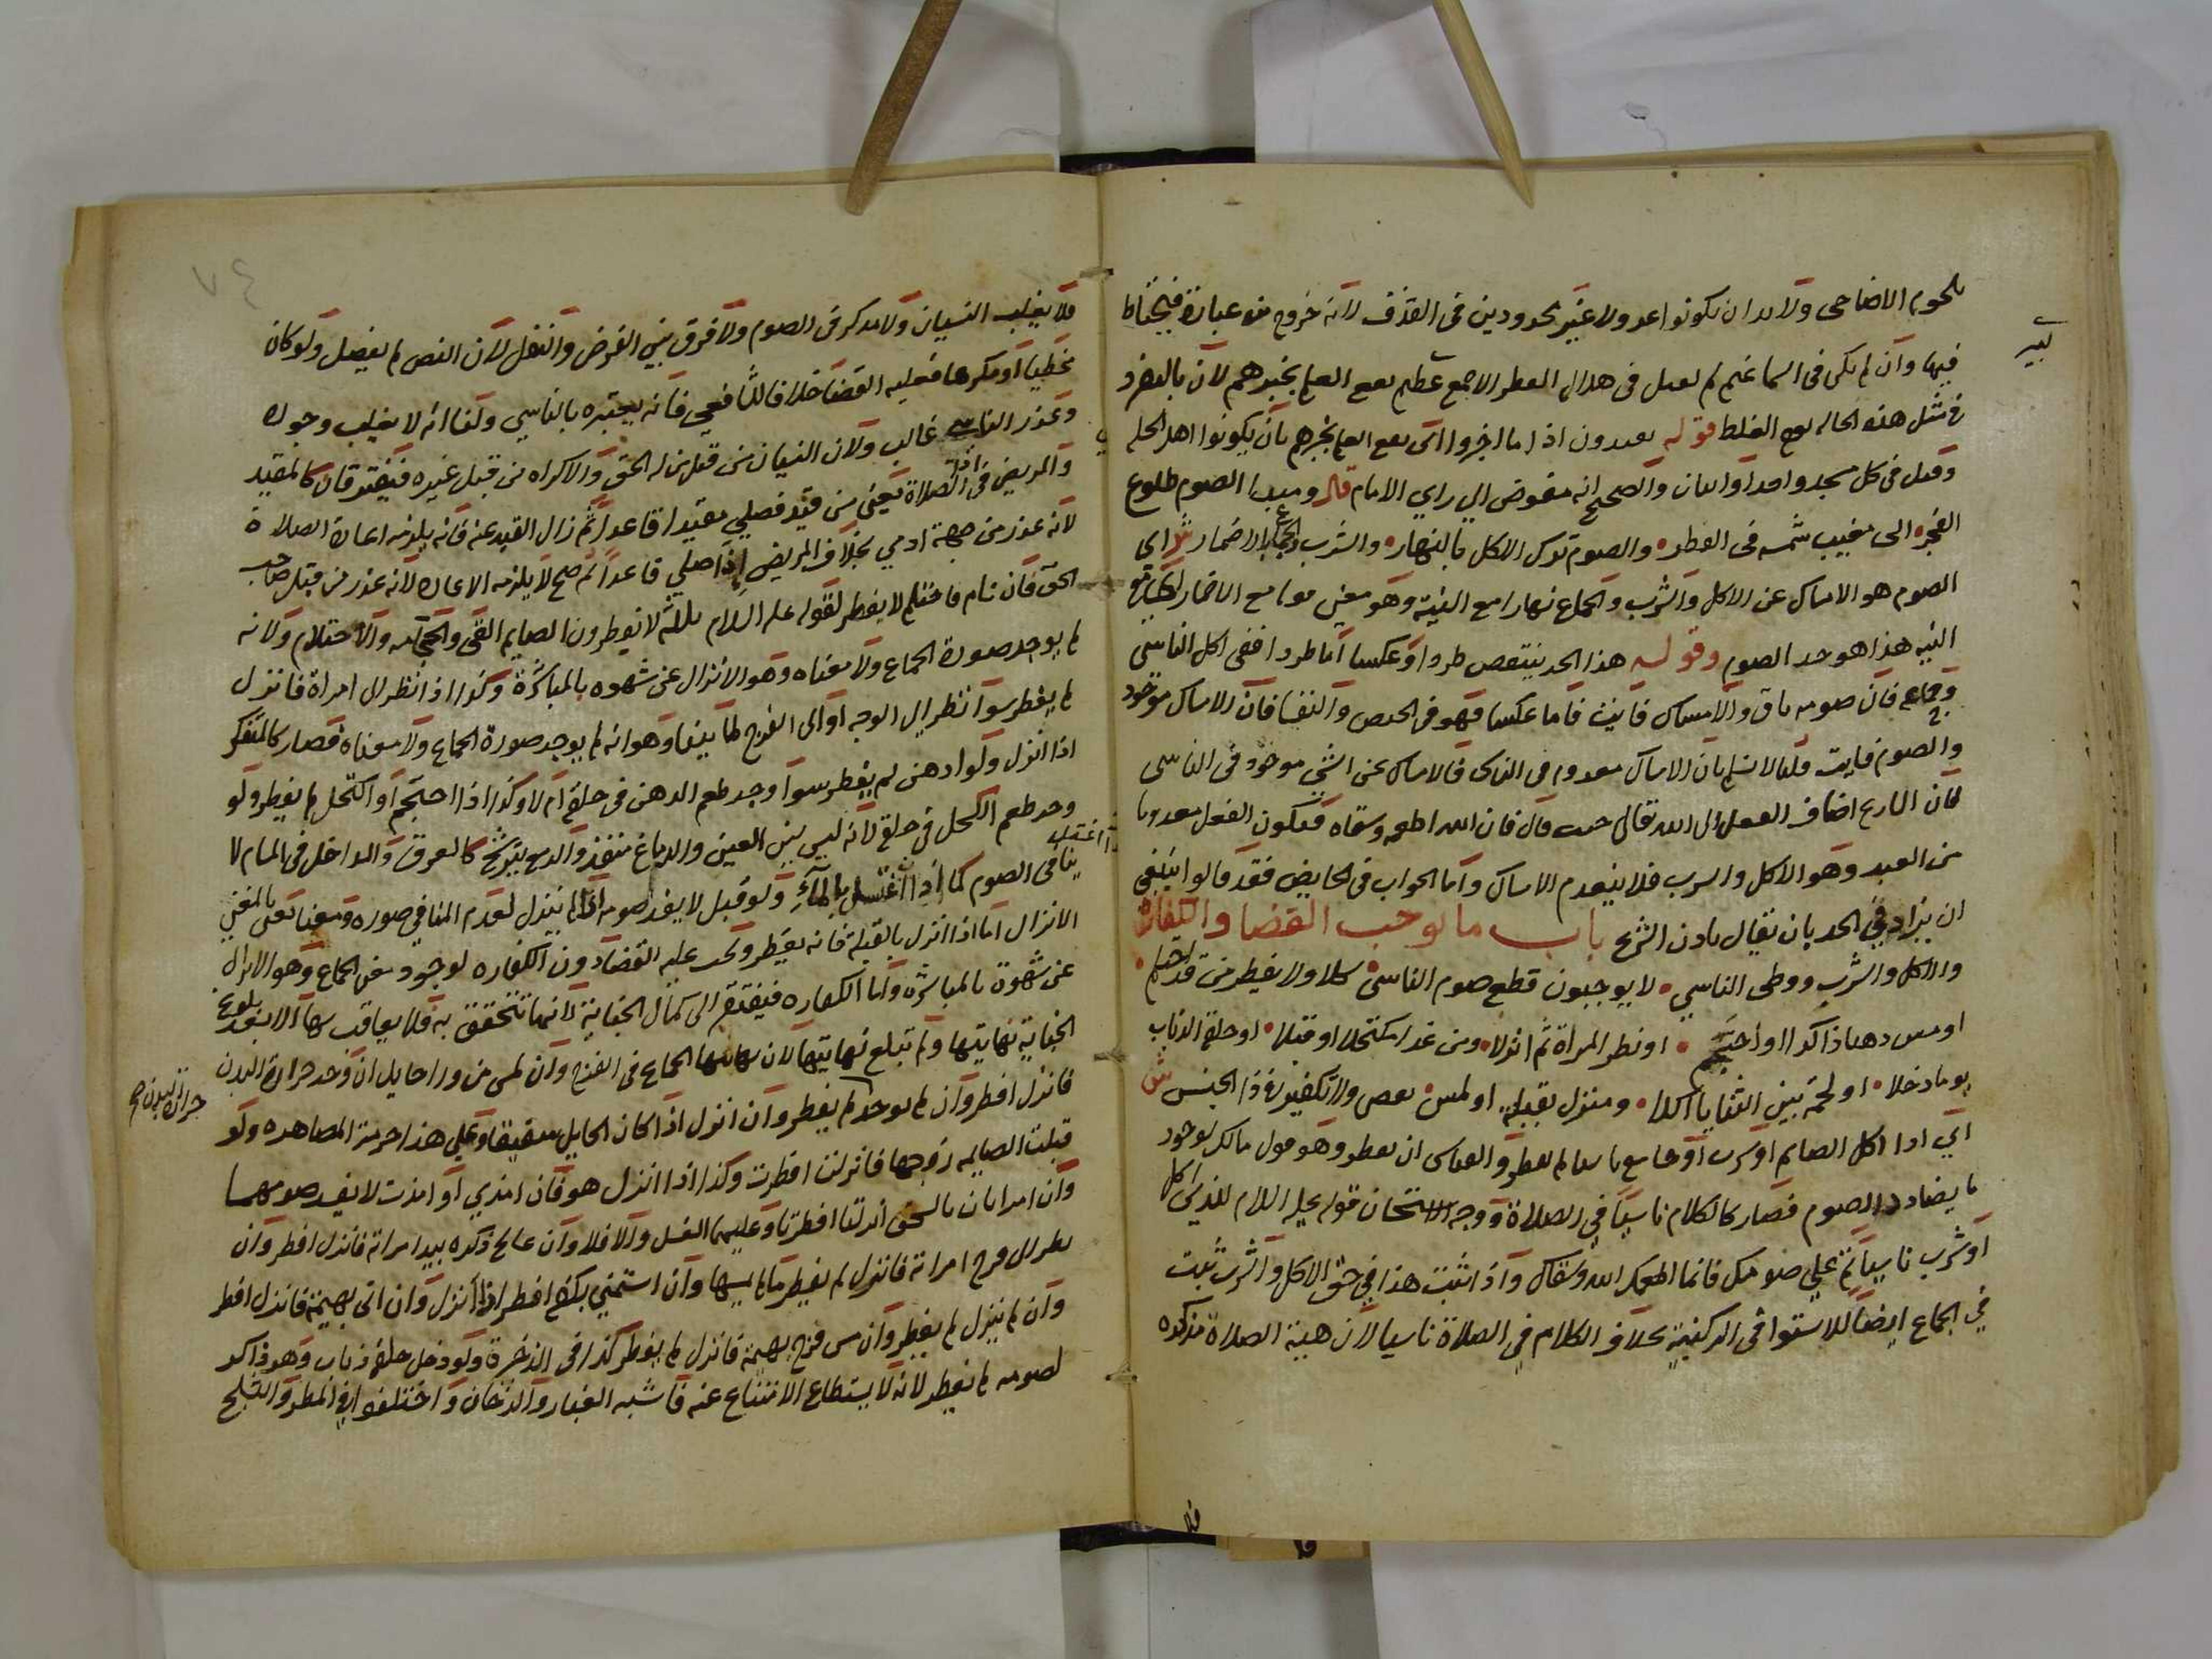 بلحوم الاضاحي ولابد ان يكونوا عدولا غير محدودين في القذف لانه خروج من عبادة فيحتاط
فيها وان لم يكن في السما غيم لم يقبل في هلال الفطر الا جمع عظيم يقع العلم بخبرهم لان بالتفرد
في مثل هذه الحالة يوهم الغلط قوله يعددون اذا ما اخبروا اي يقع العلم بخبرهم بان يكونوا اهل المحلة
وقيل في كل مسجد واحد او اثنان والصحيح انه مفوض الى راي الامام قال ومبدا الصوم طلوع
الفجر الى مغيب شمسه في الفطر والصوم ترك الاكل بالنهار والشرب والجماع اي
الصوم هو الامساك عن الاكل والشرب والجماع نهارا مع النية وهو معنى
النية هذا هو حد الصوم وقوله هذا الحد ينتقض طردا وعكسا اما طردا ففي اكل الناسي
وجماعه فان صومه باق والامساك فائت فاما عكسا فهو في الحيض والنفسا فان الامساك موجود
والصوم فايت قلنا لا نسلم بان الامساك معدوم في الناسي فالامساك عن الشي موجود في الناسي
لان الشارع اضاف الفعل الى الله تعالى حيث قال فان الله اطعمه وسقاه فيكون الفعل معدوما
من العبد وهو الاكل والشرب فلا ينعدم الامساك واما الجواب في الحايض فقد قالوا ينبغي
ان يزاد في الحد بان يقال باذن الشرع باب ما يوجب القضا والكفارة
والاكل والشرب ووطي الناسي لا يوجبون قطع صوم الناسي كلا ولا يفطر من قد احتلم
او مس دهنا ذاكرا او احتجم او نظر المراة ثم انزلا ومن غدا مكتحلا او قبلا او حلقه الذباب
يوما دخلا او لحمة بين الثنايا اكلا ومنزل بقبلة او لمس يقضي ولا تكفير في ذا الجنس ش
اي اذا اكل الصايم او شرب او جامع ناسيا لم يفطر والقياس ان يفطر وهو قول مالك لوجود
ما يضاد الصوم فصار كالكلام ناسيا في الصلاة ووجه الاستحسان قوله عليه السلام للذي اكل
او شرب ناسيا تم على صومك فانما اطعمك الله وسقاك واذا ثبت هذا في حق الاكل والشرب ثبت
في الجماع ايضا للاستوا في الركنية بخلاف الكلام في الصلاة ناسيا لان هيئة الصلاة مذكرة
فلا
فلا يغلب النسيان ولا مذكر في الصوم ولا فرق بين الفرض والنفل لان النص لم يفصل ولو كان
مخطيا او مكرها فعليه القضا خلافا للشافعي فانه يعتبره بالناسي ولنا انه لا يغلب وجوده
وعذر الناسي غالب ولان النسيان من قبل من له الحق والاكراه من قبل غيره فيفترقان كالمقيد
والمريض في الصلاة يعني من قيد فصلى مقيدا قاعدا ثم زال القيد عنه فانه يلزمه اعادة الصلاة
لانه عذر من جهة ادمي بخلاف المريض اذا صلى قاعدا ثم صح لا يلزمه الاعادة لانه عذر من قبل صاحب
الحق فان نام فاحتلم لا يفطر لقوله عليه السلام ثلاثة لا يفطرون الصايم القي والحجامة والاحتلام ولانه
لم يوجد صورة الجماع ولا معناه وهو الانزال عن شهوة بالمباشرة وكذا اذا نظر الى امراة فانزل
لم يفطر سوا نظر الى الوجه او الى الفرج لما بينا وهو انه لم يوجد صورة الجماع ولا معناه فصار كالمتفكر
اذا انزل ولو ادهن لم يفطر سوا وجد طعم الدهن في حلقه ام لا وكذا اذا احتجم او اكتحل لم يفطر ولو
وجد طعم الكحل في حلقه لانه ليس بين العين والدماغ منفذ والدمع يترشح كالعرق والداخل في المسام لا
ينافي الصوم كما اذا اغتسل بالماء ولو قبل لا يفسد صومه اذا لم ينزل لعدم المنافي صورة ومعنا يعني بالمعنى
الانزال اما اذا انزل بالقبلة فانه يفطر ويجب عليه القضا دون الكفارة لوجود معنى الجماع وهو الانزال
عن شهوة بالمباشرة واما الكفارة فيفتقر الى كمال الجناية لانها تتحقق به فلا يعاقب بها الا بعد بلوغ
الجناية نهايتها ولم تبلغ نهايتها لان نهايتها الجماع في الفرج وان لمس من ورا حايل ان وجد حرارة البدن
فانزل افطر وان لم يوجد لم يفطر وان انزل اذا كان الحايل صفيقا وعلى هذا حرمة المصاهرة ولو
قبلت الصايمة زوجها فانزلت افطرت وكذا اذا انزل هو فان امذى او امذت لا يفسد صومهما
وان امراتان بالسحق انزلتا افطرتا وعليهما الغسل والا فلا وان عالج ذكره بيد امراته فانزل افطر وان
نظر الى فرج امراته فانزل لم يفطر ما لم يمسها وان استمنى بكفه افطر اذا انزل وان اتى بهيمة فانزل افطر
وان لم ينزل لم يفطر وان مس فرج بهيمة فانزل لم يفطر كذا في الذخيرة ولو دخل حلقه ذباب وهو ذاكر
لصومه لم يفطر لانه لا يستطاع الامتناع عنه فاشبه الغبار والدخان واختلفوا في المطر والثلج
حرارة البدن صح